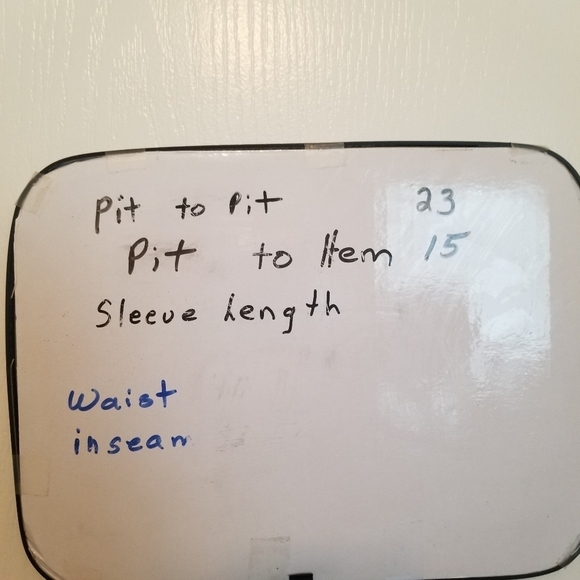 Pit to Pit 23
Pit to Hem 15
Sleeve Length
Waist
inseam